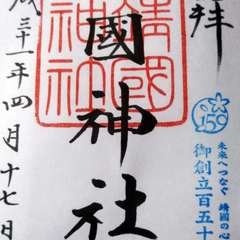 拝
150
未来へつなぐ 靖國の心
御創立百五十
國神社
靖國神社
成三十一年四月十七日